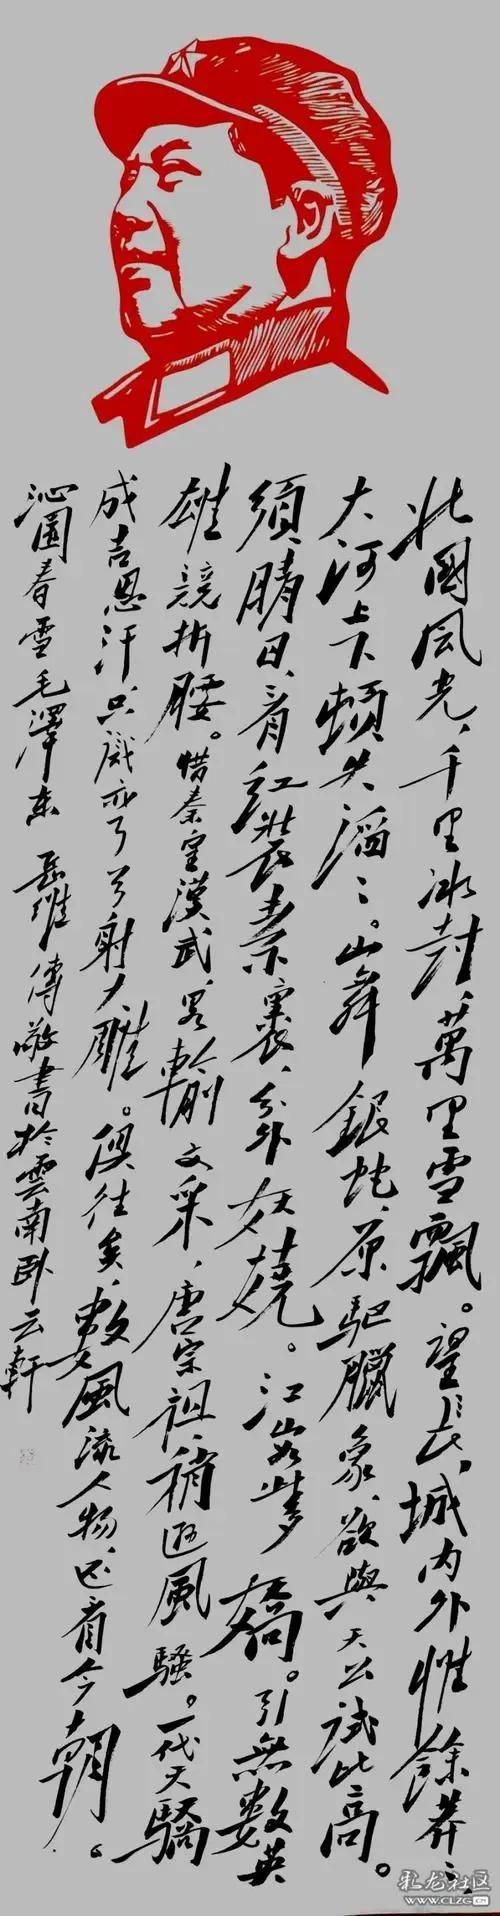 北國风光、千里冰封、萬里雪飄。望長城内外惟餘莽〻
大河上下頓失滔〻。山舞銀蛇、原馳臘象、欲與天公試比高。
須晴日、看紅裝素裹、分外妖嬈。江山如此多嬌。引無數英
雄競折腰。惜秦皇漢武、畧輸文采、唐宗祖、稍逊風騷。一代天驕
成吉思汗、只識弯弓射大雕。俱往矣、數風流人物、还看今朝。
沁園春雪毛澤东 敬書於雲南卧云軒
彩龙社区
WWW.CLZG.CN